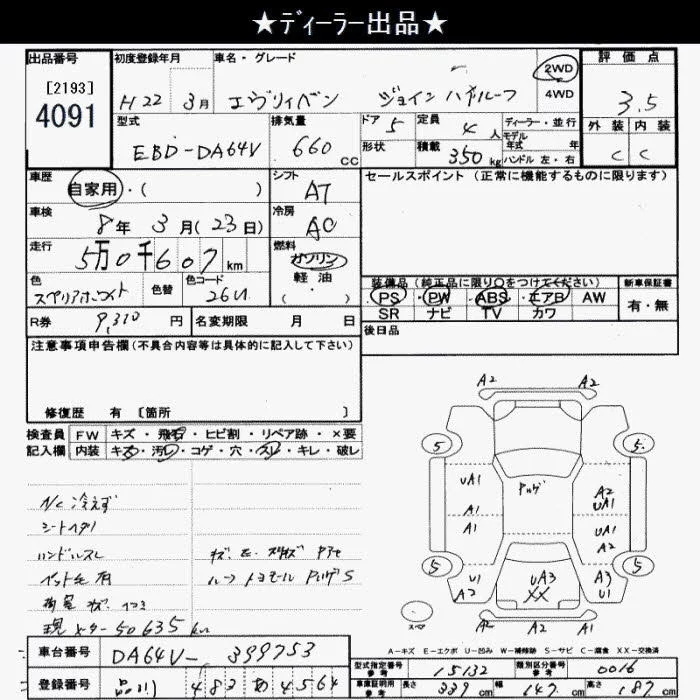 ★ディーラー出品★
出品番号 初度登録年月 車名・グレード 2WD 評価点
[2193] 4WD
4091 H22 3月 エヴリィバン ジョイン ハイルーフ 3.5
型式 排気量 ドア 5 定員 4人 ディーラー・並行 外装 内装
モデル年式 年
EBD-DA64V 660cc 形状 積載 350kg ハンドル 左・右 C C
車歴 自家用・( ) シフト AT セールスポイント(正常に機能するものに限ります)
車検 8年 3月(23日) 冷房 AC
走行 5万0千607km 燃料 ガソリン
軽油
( )
色 スペリアホワイト 色替 色コード 26U
装備品(純正品に限り○をつけてください) 新車保証書
PS PW ABS エアB AW 有・無
SR ナビ TV カワ
R券 9,310円 名変期限 月 日 後日品
注意事項申告欄(不具合内容等は具体的に記入して下さい)
修復歴 有 [箇所 ]
検査員 FW キズ・飛石・ヒビ割・リペア跡・×要
記入欄 内装 キズ・汚れ・コゲ・穴・スレ・キレ・破レ
A/C 冷えず
シートヘタリ
ハンドルスレ
ペット毛有
荷室 キズ
現メーター 50635km
A2 A2
5 5
UA1 A2
UA1
A1
A1 UA1
A2
5 5
U1 UA3 A3
A2 XX U1
A2 A1 A2
スペア
A-キズ E-エクボ U-凹み W-補修跡 S-サビ C-腐食 XX-交換済
車台番号 DA64V-399753
型式指定番号 参考 15132 類別区分番号 参考 0016
登録番号 品川 483 あ 4564
車庫証明用 参考 長さ 339cm 幅 147cm 高さ 187cm